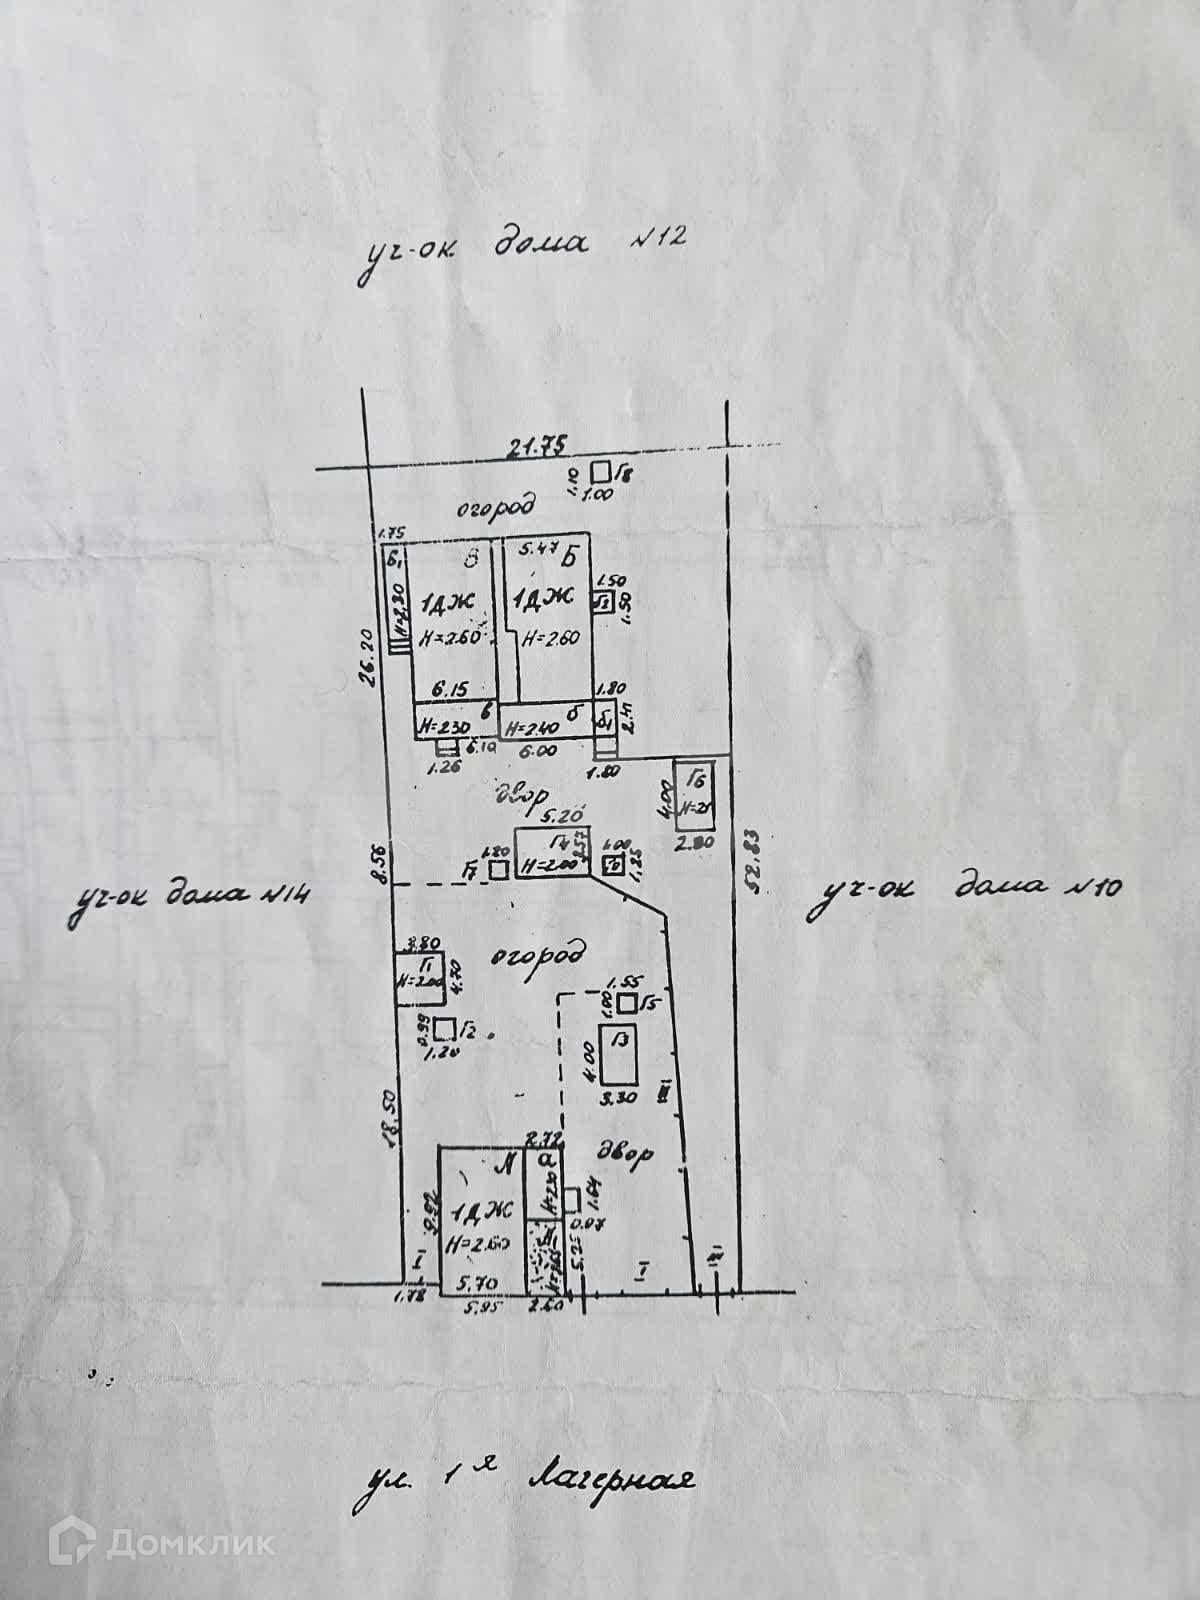 уч-ок дома №12
21.75
1.10
Г8
1.00
огород
1.75
5.47
Б
В
1ДЖ
1ДЖ
1.50
1.50
H=2.60
H=2.60
26.20
6.15
1.80
в
б
б1
2.41
H=2.30
H=2.40
6.10
6.00
1.26
1.80
двор
Г6
4.00
2.80
5.20
Г4
2.57
H=2.00
1.80
Г7
1.00
1.25
8.56
52.83
уч-ок дома №14
уч-ок дома №10
3.80
Г1
H=2.00
4.70
огород
1.55
1.00
Г5
0.99
Г2
1.20
Г3
4.00
3.30
III
18.50
2.72
двор
а
1ДЖ
H=2.60
9.92
1.64
0.97
5.25
I
I
5.70
1.78
5.95
2.60
ул. 1я Лагерная
Домклик